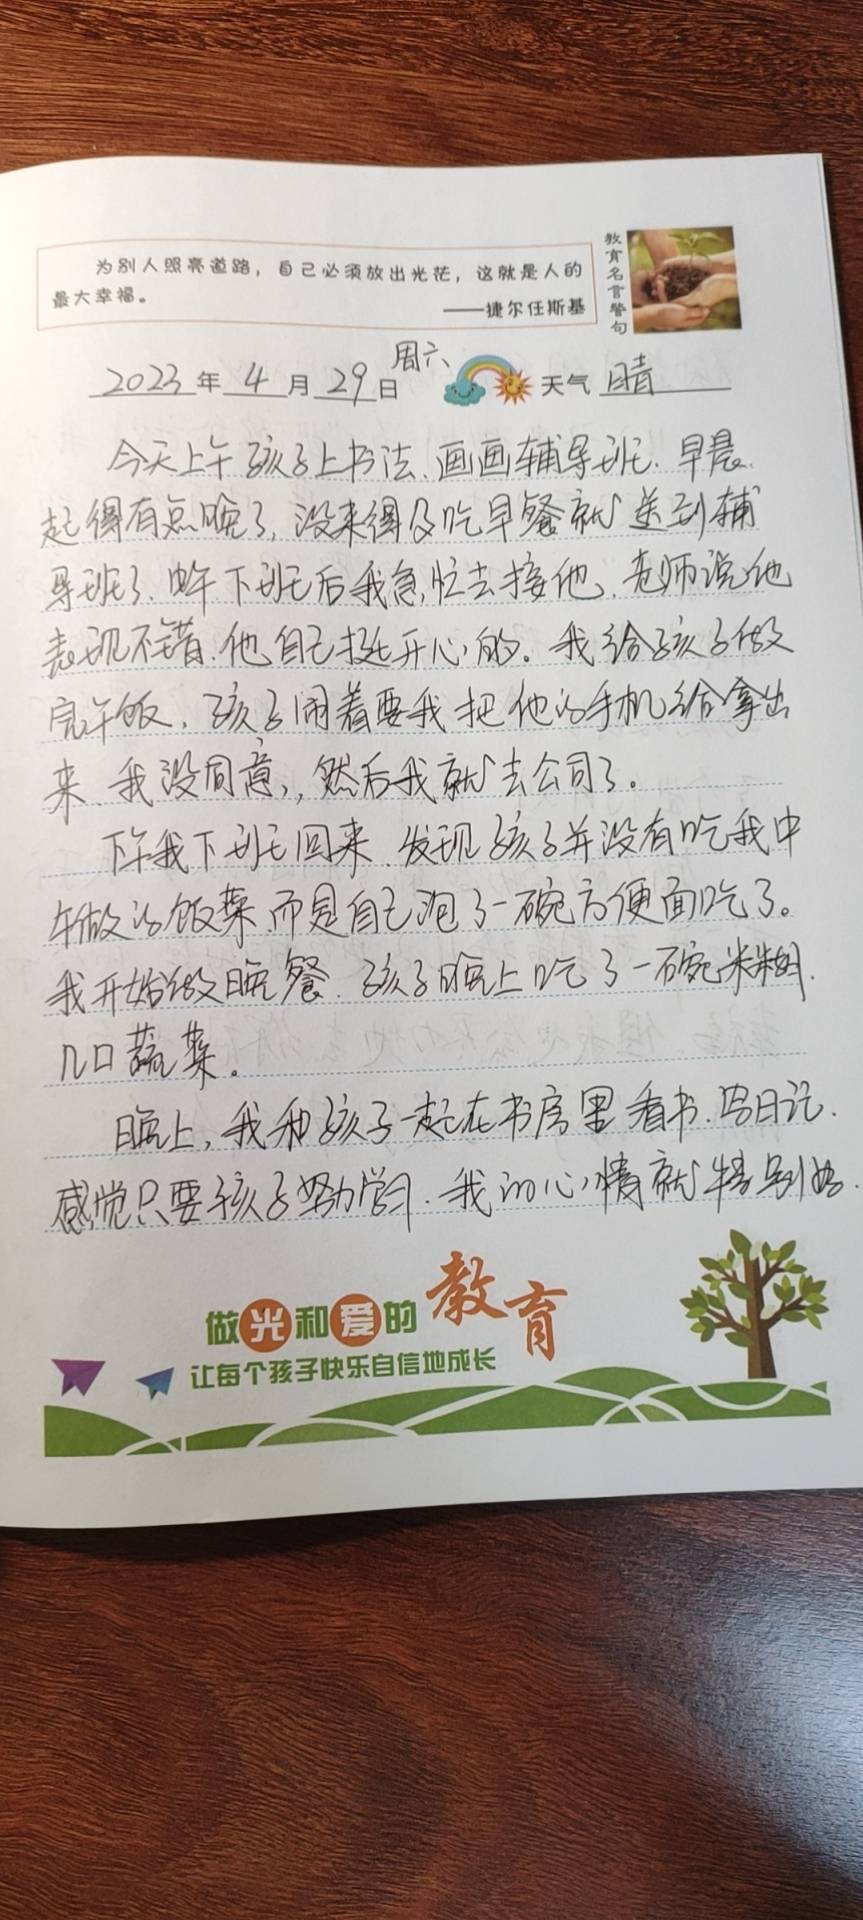 为别人照亮道路，自己必须放出光芒，这就是人的
最大幸福。
——捷尔任斯基
教育名言警句
2023年4月29日周六 天气 晴
今天上午孩子上书法、画画辅导班、早晨
起得有点晚了，没来得及吃早餐就送到辅
导班了、中午下班后我急忙去接他、老师说他
表现不错、他自己挺开心的。我给孩子做
完午饭、孩子闹着要我把他的手机给拿出
来、我没同意，然后我就去公司了。
下午我下班回来、发现孩子并没有吃我中
午做的饭菜、而是自己泡了一碗方便面吃了。
我开始做晚餐、孩子晚上吃了一碗米糊、
几口蔬菜。
晚上，我和孩子一起在书房里看书、写日记、
感觉只要孩子努力学习、我的心情就特别好.
做光和爱的教育
让每个孩子快乐自信地成长